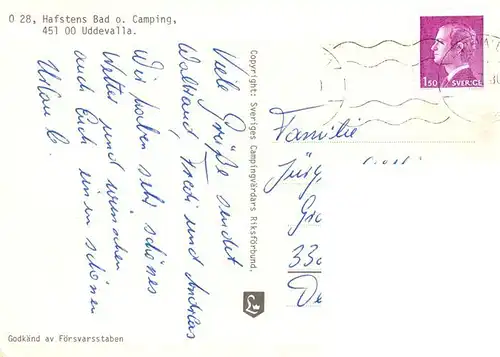 O 28, Hafstens Bad o. Camping,
451 00 Uddevalla.
Viele Grüße sendet
Waltraud, Fredi und Andreas
Wir haben sehr schönes
Wetter und wünschen
auch Euch einen schönen
Urlaub.
Copyright: Sveriges Campingvärdars Riksförbund.
1.50 SVERIGE
Familie
Godkänd av Försvarsstaben